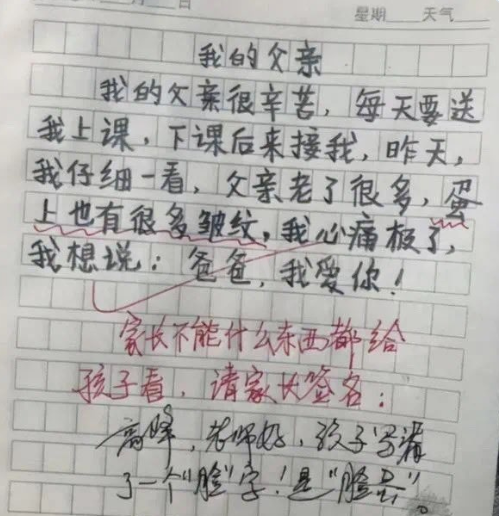 日 星期 天气
我的父亲
我的父亲很辛苦，每天要送
我上课，下课后来接我，昨天，
我仔细一看，父亲老了很多，蛋
上也有很多皱纹，我心痛极了，
我想说：爸爸，我爱你！
家长不能什么东西都给
孩子看，请家长签名：
高峰，老师好，孩子写漏
了一个"脸"字！是"脸蛋"。